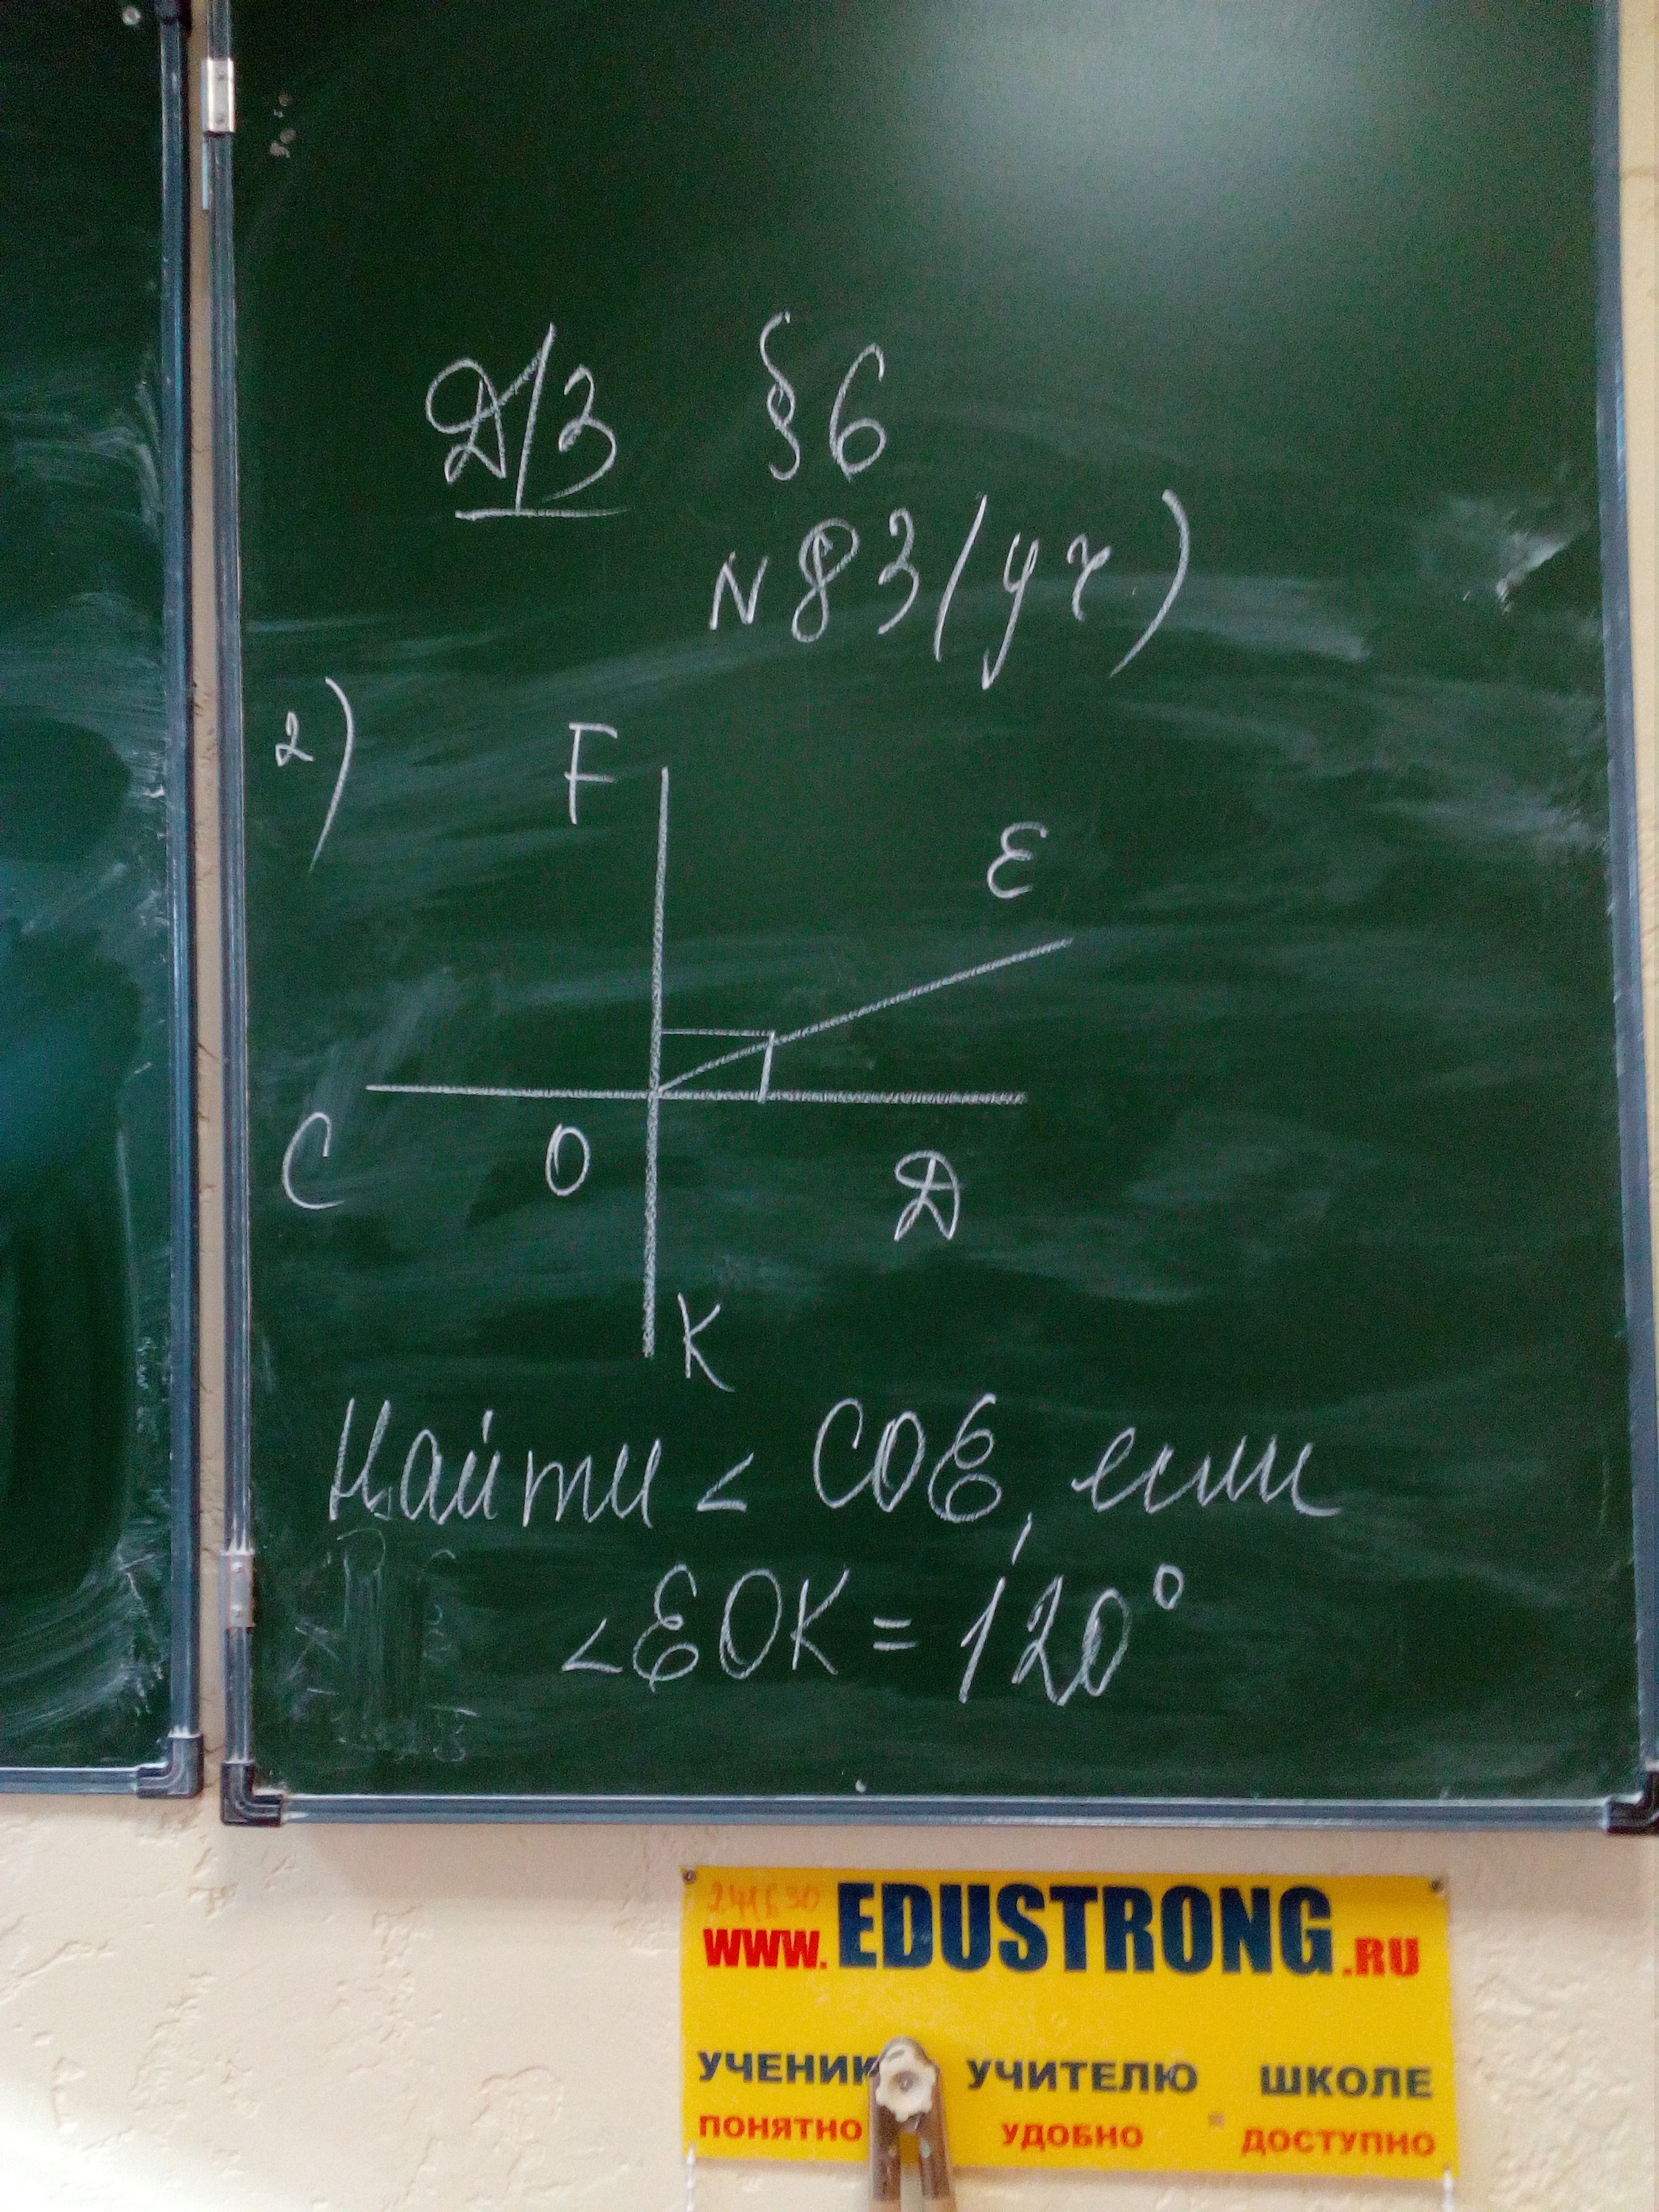 Д/З §6
N 83 (уч)
2)
F
E
C
O
D
K
Найти < COE, если
<EOK = 120°
WWW.EDUSTRONG.RU
УЧЕНИК УЧИТЕЛЮ ШКОЛЕ
ПОНЯТНО УДОБНО ДОСТУПНО